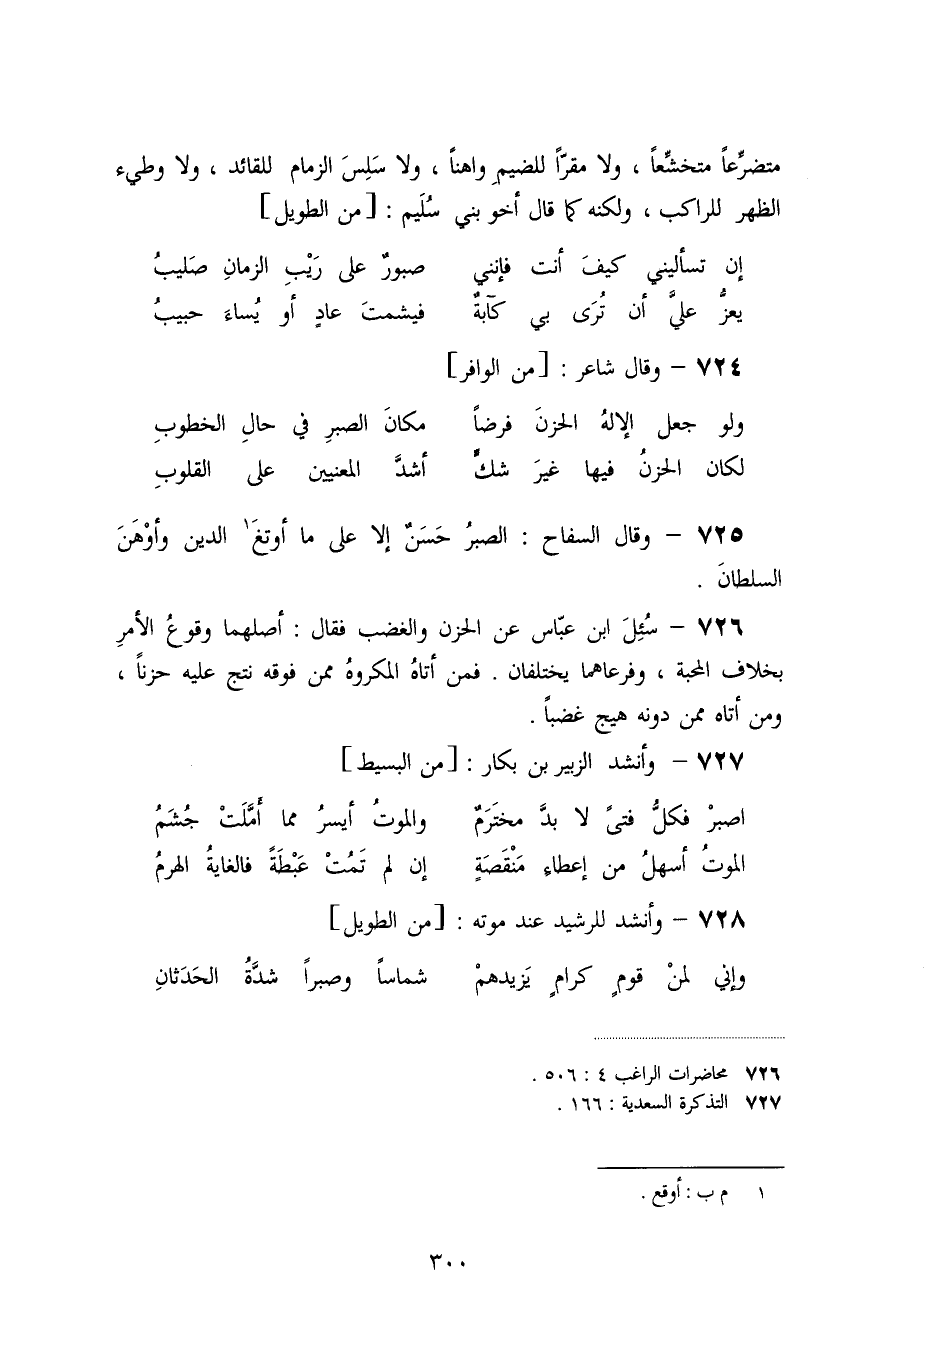 متضرِّعاً متخشِّعاً ، ولا مقرّاً للضيمِ واهناً ، ولا سَلِسَ الزمام للقائد ، ولا وطيء
الظهر للراكب ، ولكنه كما قال أخو بني سُلَيم : [من الطويل]
إن تسأليني كيفَ أنت فإنني صبورٌ على رَيْبِ الزمانِ صَليبُ
يعزُّ عليَّ أن تُرَى بي كآبةٌ فيشمتَ عادٍ أو يُساءَ حبيبُ
٧٢٤ – وقال شاعر : [من الوافر]
ولو جعل الإلهُ الحزنَ فرضاً مكانَ الصبرِ في حالِ الخطوبِ
لكان الحزنُ فيها غيرَ شكٍّ أشدَّ المعنيين على القلوبِ
٧٢٥ – وقال السفاح : الصبرُ حَسَنٌ إلا على ما أوتغَ١ الدين وأوْهَنَ
السلطانَ .
٧٢٦ – سُئِلَ ابن عبّاس عن الحزن والغضب فقال : أصلهما وقوعُ الأمرِ
بخلاف المحبة ، وفرعاهما يختلفان . فمن أتاهُ المكروهُ ممن فوقه نتج عليه حزناً ،
ومن أتاه ممن دونه هيج غضباً .
٧٢٧ – وأنشد الزبير بن بكار : [من البسيط]
اصبرْ فكلُّ فتىً لا بدَّ مخترَمٌ والموتُ أيسرُ مما أَمَّلَتْ جُشَمُ
الموتُ أسهلُ من إعطاءِ مَنْقَصَةٍ إن لم تَمُتْ عَبْطَةً فالغايةُ الهرمُ
٧٢٨ – وأنشد للرشيد عند موته : [من الطويل]
وإني لمنْ قومٍ كرامٍ يَزيدهمْ شماساً وصبراً شدَّةُ الحَدَثانِ
٧٢٦ محاضرات الراغب ٤ : ٥٠٦ .
٧٢٧ التذكرة السعدية : ١٦٦ .
١ م ب : أوقع .
٣٠٠